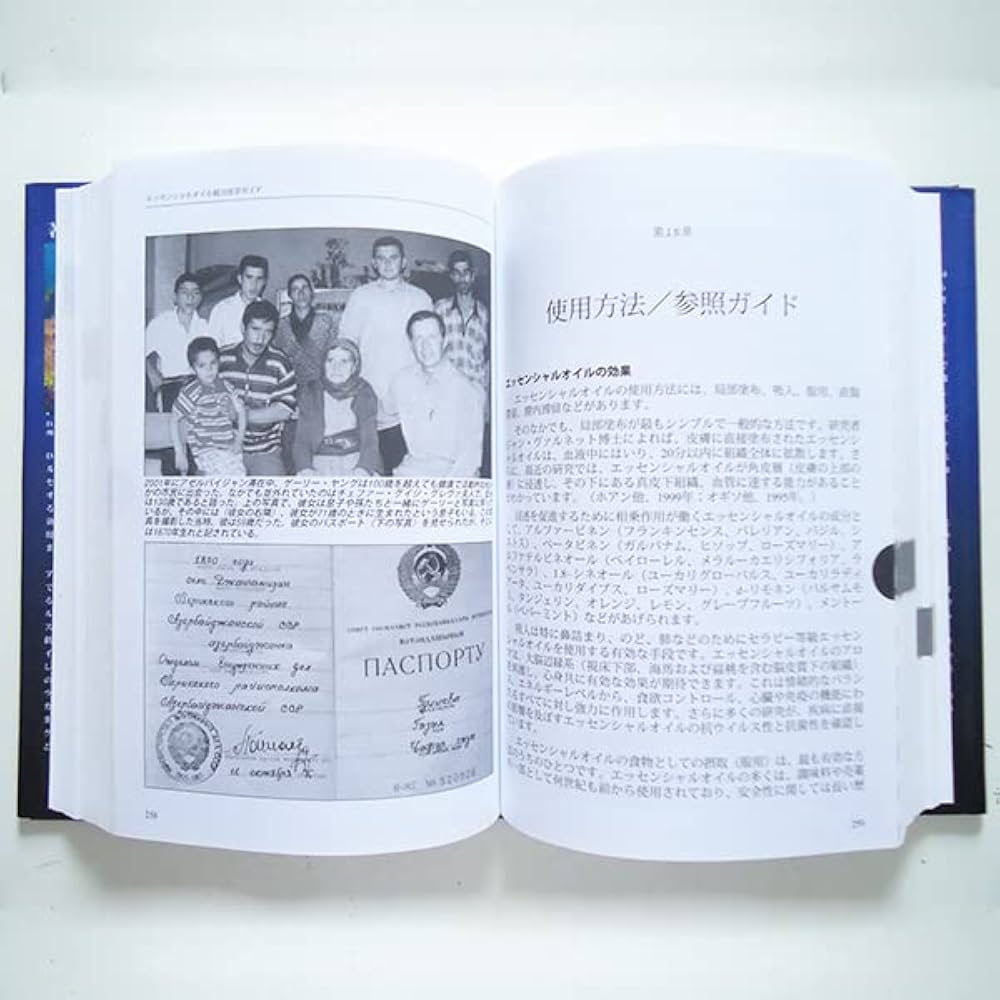 エッセンシャルオイル統合医学ガイド
2001年にアゼルバイジャン滞在中、ゲーリー・ヤングは100歳を超えても健康で活動的な
かの市民に出会った。なかでも並外れていたのは
は130歳であると語った。上の写真で、彼女は息子や孫たちと一緒にゲーリーと写真に
いるが、その中には（彼女の右隣）、彼女が71歳のときに生まれたという息子もいる。
真を撮影した当時、彼は59歳だった。彼女のパスポート（下の写真）を見せられたが、そこに
は1870年生れと記されている。
1870 году
сел. Джанамиран
Лерикского района
Азербайджанской ССР
азербайджанка
Отделом внутренних дел
Лерикского райисполкома
Азербайджанской ССР
11 октября
СОЮЗ СОВЕТСКИХ СОЦИАЛИСТИЧЕСКИХ
ПАСПОРТУ
№ 520928
258
第18章
使用方法／参照ガイド
エッセンシャルオイルの効果
エッセンシャルオイルの使用方法には、局部塗布、吸入、服用、直腸
膣内滞留などがあります。
そのなかでも、局部塗布が最もシンプルで一般的な方法です。研究者
ジャン・ヴァルネット博士によれば、皮膚に直接塗布されたエッセン
オイルは、血液中にはいり、20分以内に組織全体に拡散します。さ
最近の研究では、エッセンシャルオイルが角皮層（皮膚の上部の
に浸透し、その下にある真皮下組織、血管に達する能力があること
かっています。（ホアン他、1999年；オギソ他、1995年。）
浸透を促進するために相乗作用が働くエッセンシャルオイルの成分と
て、アルファーピネン（フランキンセンス、バレリアン、バジル、
ベータピネン（ガルバナム、ヒソップ、ローズマリー）、ア
ルファテルピネオール（ベイローレル、メラルーカエリシフォリア、ラ
ベンサラ）、1.8-シネオール（ユーカリグローバルス、ユーカリラディ
アータ、ユーカリダイブス、ローズマリー）、d-リモネン（バルサムモ
タンジェリン、オレンジ、レモン、グレープフルーツ）、メントー
（ペパーミント）などがあげられます。
吸入は特に鼻詰まり、のど、肺などのためにセラピー等級エッセン
シャルオイルを使用する有効な手段です。エッセンシャルオイルのアロ
は、大脳辺縁系（視床下部、海馬および扁桃を含む脳皮質下の組織）
を刺激し、心身共に有効な効果が期待できます。これは情緒的なバラン
ス、エネルギーレベルから、食欲コントロール、心臓や免疫の機能にわ
たるすべてに対し強力に作用します。さらに多くの研究が、疾病に直接
影響を及ぼすエッセンシャルオイルの抗ウイルス性と抗菌性を確認し
ています。
エッセンシャルオイルの食物としての摂取（服用）は、最も有効な方
法のうちのひとつです。エッセンシャルオイルの多くは、調味料や売薬
の一部として何世紀も前から使用されており、安全性に関しては長い歴
259